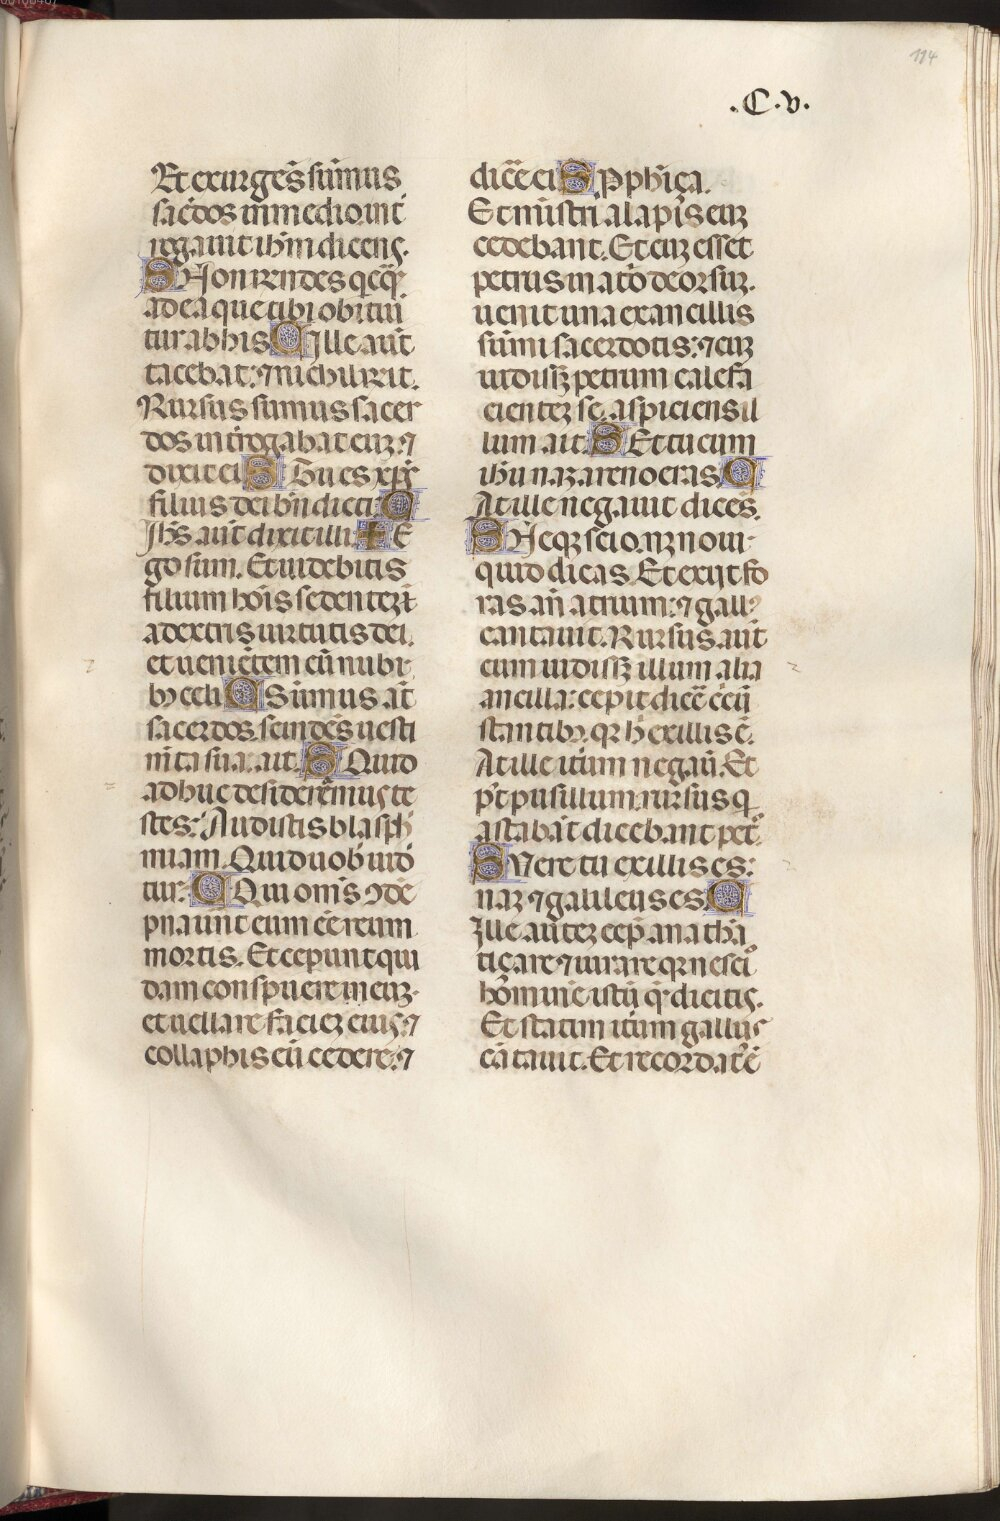 114
.C.v.
Et exurge͂s su͂mus
sac͂dos in medio int͂
rogauit ih͂m dicens.
S Non rn͂des q͂cq͂
ad ea que tibi obiciu͂
tur ab his C Ille aut͂
tacebat: ⁊ nichil rn͂t.
Rursus sumus sacer
dos int͂rogabat euꝫ ⁊
dixit ei S Tu es xp͂s
filius dei bn͂dicti C
Ih͂s aut͂ dixit illi. ✚ E
go sum. Et uidebitis
filium ho͂is sedenteꝫ
a dextris uirtutis dei.
et uenie͂tem cu͂ nubi
bꝫ celi C Su͂mus at͂
sacerdos scinde͂s uesti
mn͂ta sua. ait. S Quid
adhuc desidera͂mus te
stes: Audistis blasph͂
miam. Quid uob͂ uid͂
tur. C Qui om͂s ꝯde͂
pnauiu͂t eum e͂e reum
mortis. Et ceperunt qui
dam conspuere in euꝫ.
et uellare facieꝫ eius. ⁊
collaphis eu͂ cedere. ⁊
dice͂ ei S Pph͂iça.
Et mi͂stri alapis euꝫ
cedebant. Et cuꝫ esset
petrus in at͂o deorsuꝫ.
uenit una ex ancillis
su͂mi sacerdotis: ⁊ cuꝫ
uidissꝫ petrum calefa
cienteꝫ se. aspiciens il
lum ait S Et tu cum
ih͂u naꝫareno eras C
At ille negauit dice͂s.
S Neqꝫ scio. nꝫ noui
quid dicas. Et exijt fo
ras an͂ atrium: ⁊ gall᷒
cantauit. Rursus aut͂
cum uidissꝫ illum alia
ancilla: cepit dice͂ c͂cu͂
stantibꝫ. qꝛ h ex illis e͂.
At ille it͂um negau͂. Et
p᷒t pusillum. rursus q͂
astaba͂t dicebant pet͂o
S Vere tu ex illis es:
naꝫ ⁊ galileus es. C
Ille auteꝫ cep͂ anatha͂
tiçare ⁊ iurare qꝛ nescio
ho͂mine͂ istu͂ q͂ dicitis.
Et statim it͂um gallus
ca͂tauit. Et recordat᷒ e͂